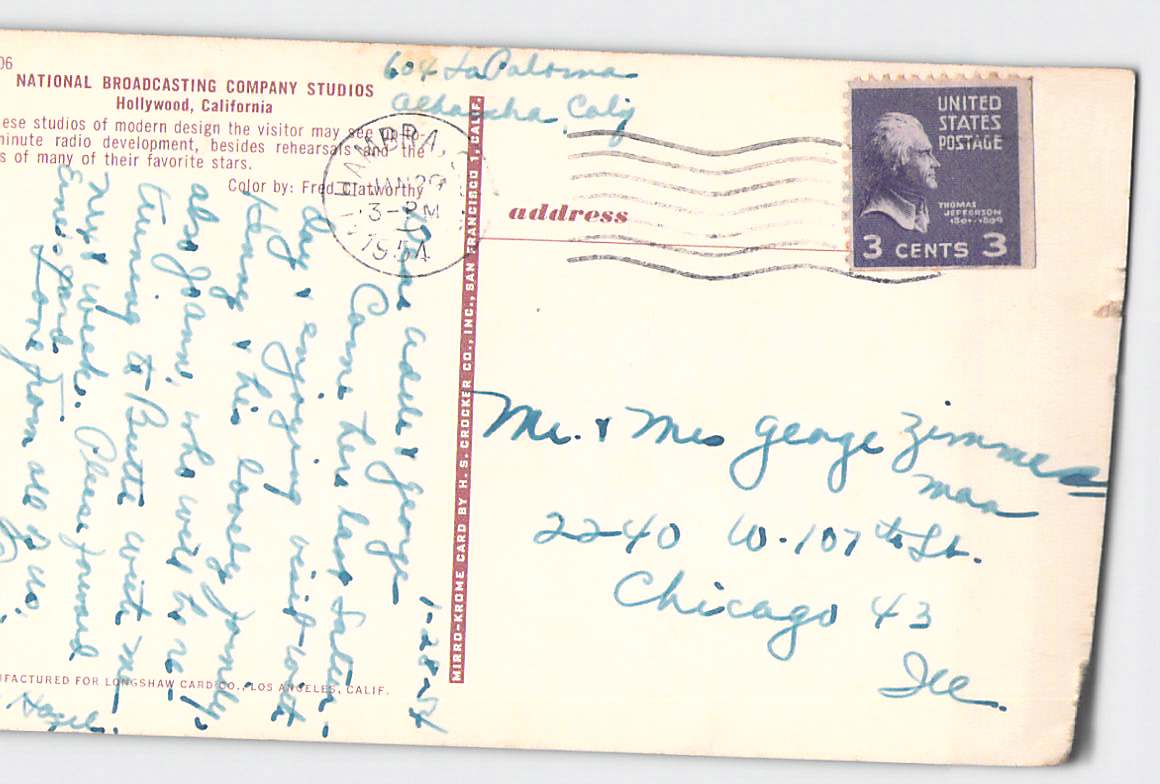 06
NATIONAL BROADCASTING COMPANY STUDIOS
Hollywood, California
ese studios of modern design the visitor may see up-to-
minute radio development, besides rehearsals and the
s of many of their favorite stars.
Color by: Fred Clatworthy
604 La Paloma
Alhambra, Calif
HAMBRA,
JAN 29
3-PM
1954
UNITED
STATES
POSTAGE
THOMAS
JEFFERSON
1801-1809
3 CENTS 3
address
MIRRO-KROME CARD BY H. S. CROCKER CO., INC., SAN FRANCISCO 1, CALIF.
1-28-54
Dear Adele & George
Came here last Satur-
day & enjoying visit with
& his lovely family,
also Joann, who will be re-
turning to Butte with me
next week. Please forward
card.
Love from all of us,
Hazel
Mr. & Mrs George Zimmer
man
2240 W. 107th St.
Chicago 43
Ill.
UFACTURED FOR LONGSHAW CARD CO., LOS ANGELES, CALIF.